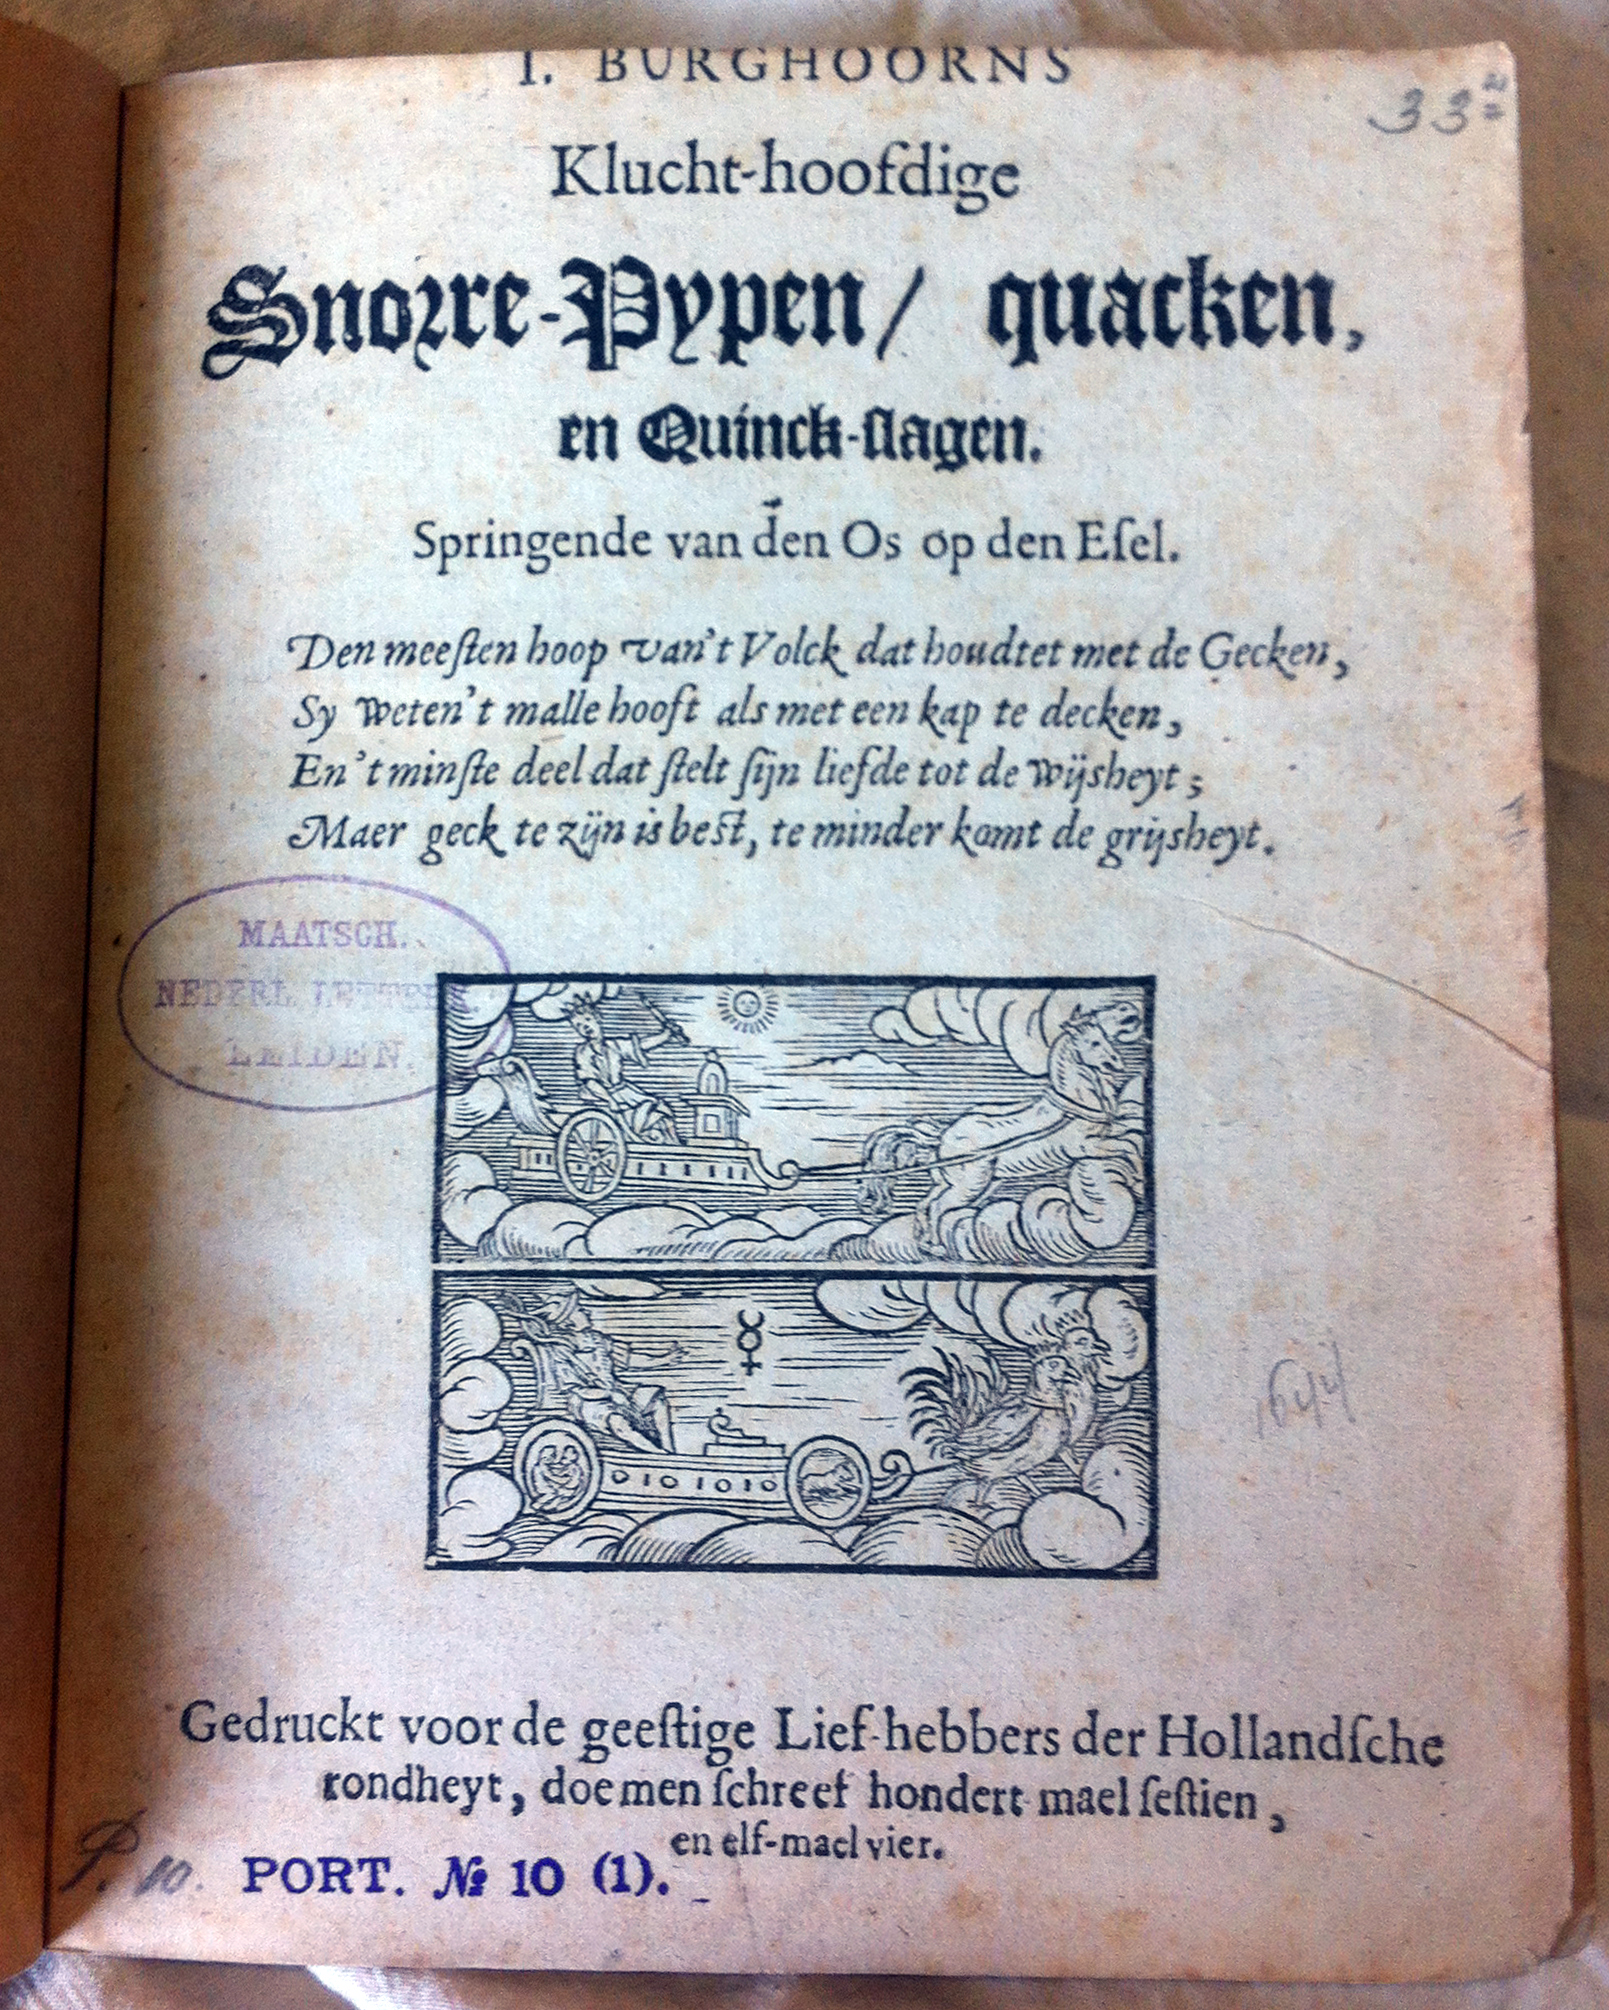 I. BURGHOORNS
33
Klucht-hoofdige
Snorre-Pypen / quacken,
en Quinck-slagen.
Springende van den Os op den Eſel.
Den meeſten hoop van't Volck dat houdtet met de Gecken,
Sy weten't malle hooft als met een kap te decken,
En 't minſte deel dat ſtelt ſijn liefde tot de wijsheyt;
Maer geck te zijn is best, te minder komt de grijsheyt.
MAATSCH.
NEDERL. LETTERK
LEIDEN.
☿
010 1010
1644
Gedruckt voor de geeſtige Lief-hebbers der Hollandſche
rondheyt, doemen ſchreef hondert mael ſeſtien,
en elf-mael vier.
P. 10.
PORT. № 10 (1).